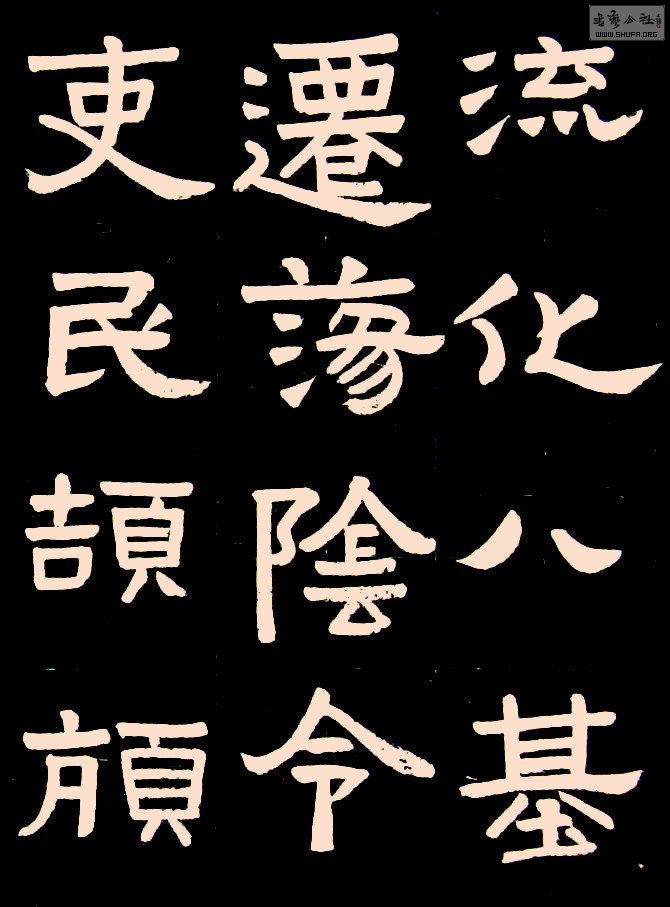 流化八基
遷蕩陰令
吏民頡頏
书艺公社
WWW.SHUFA.ORG